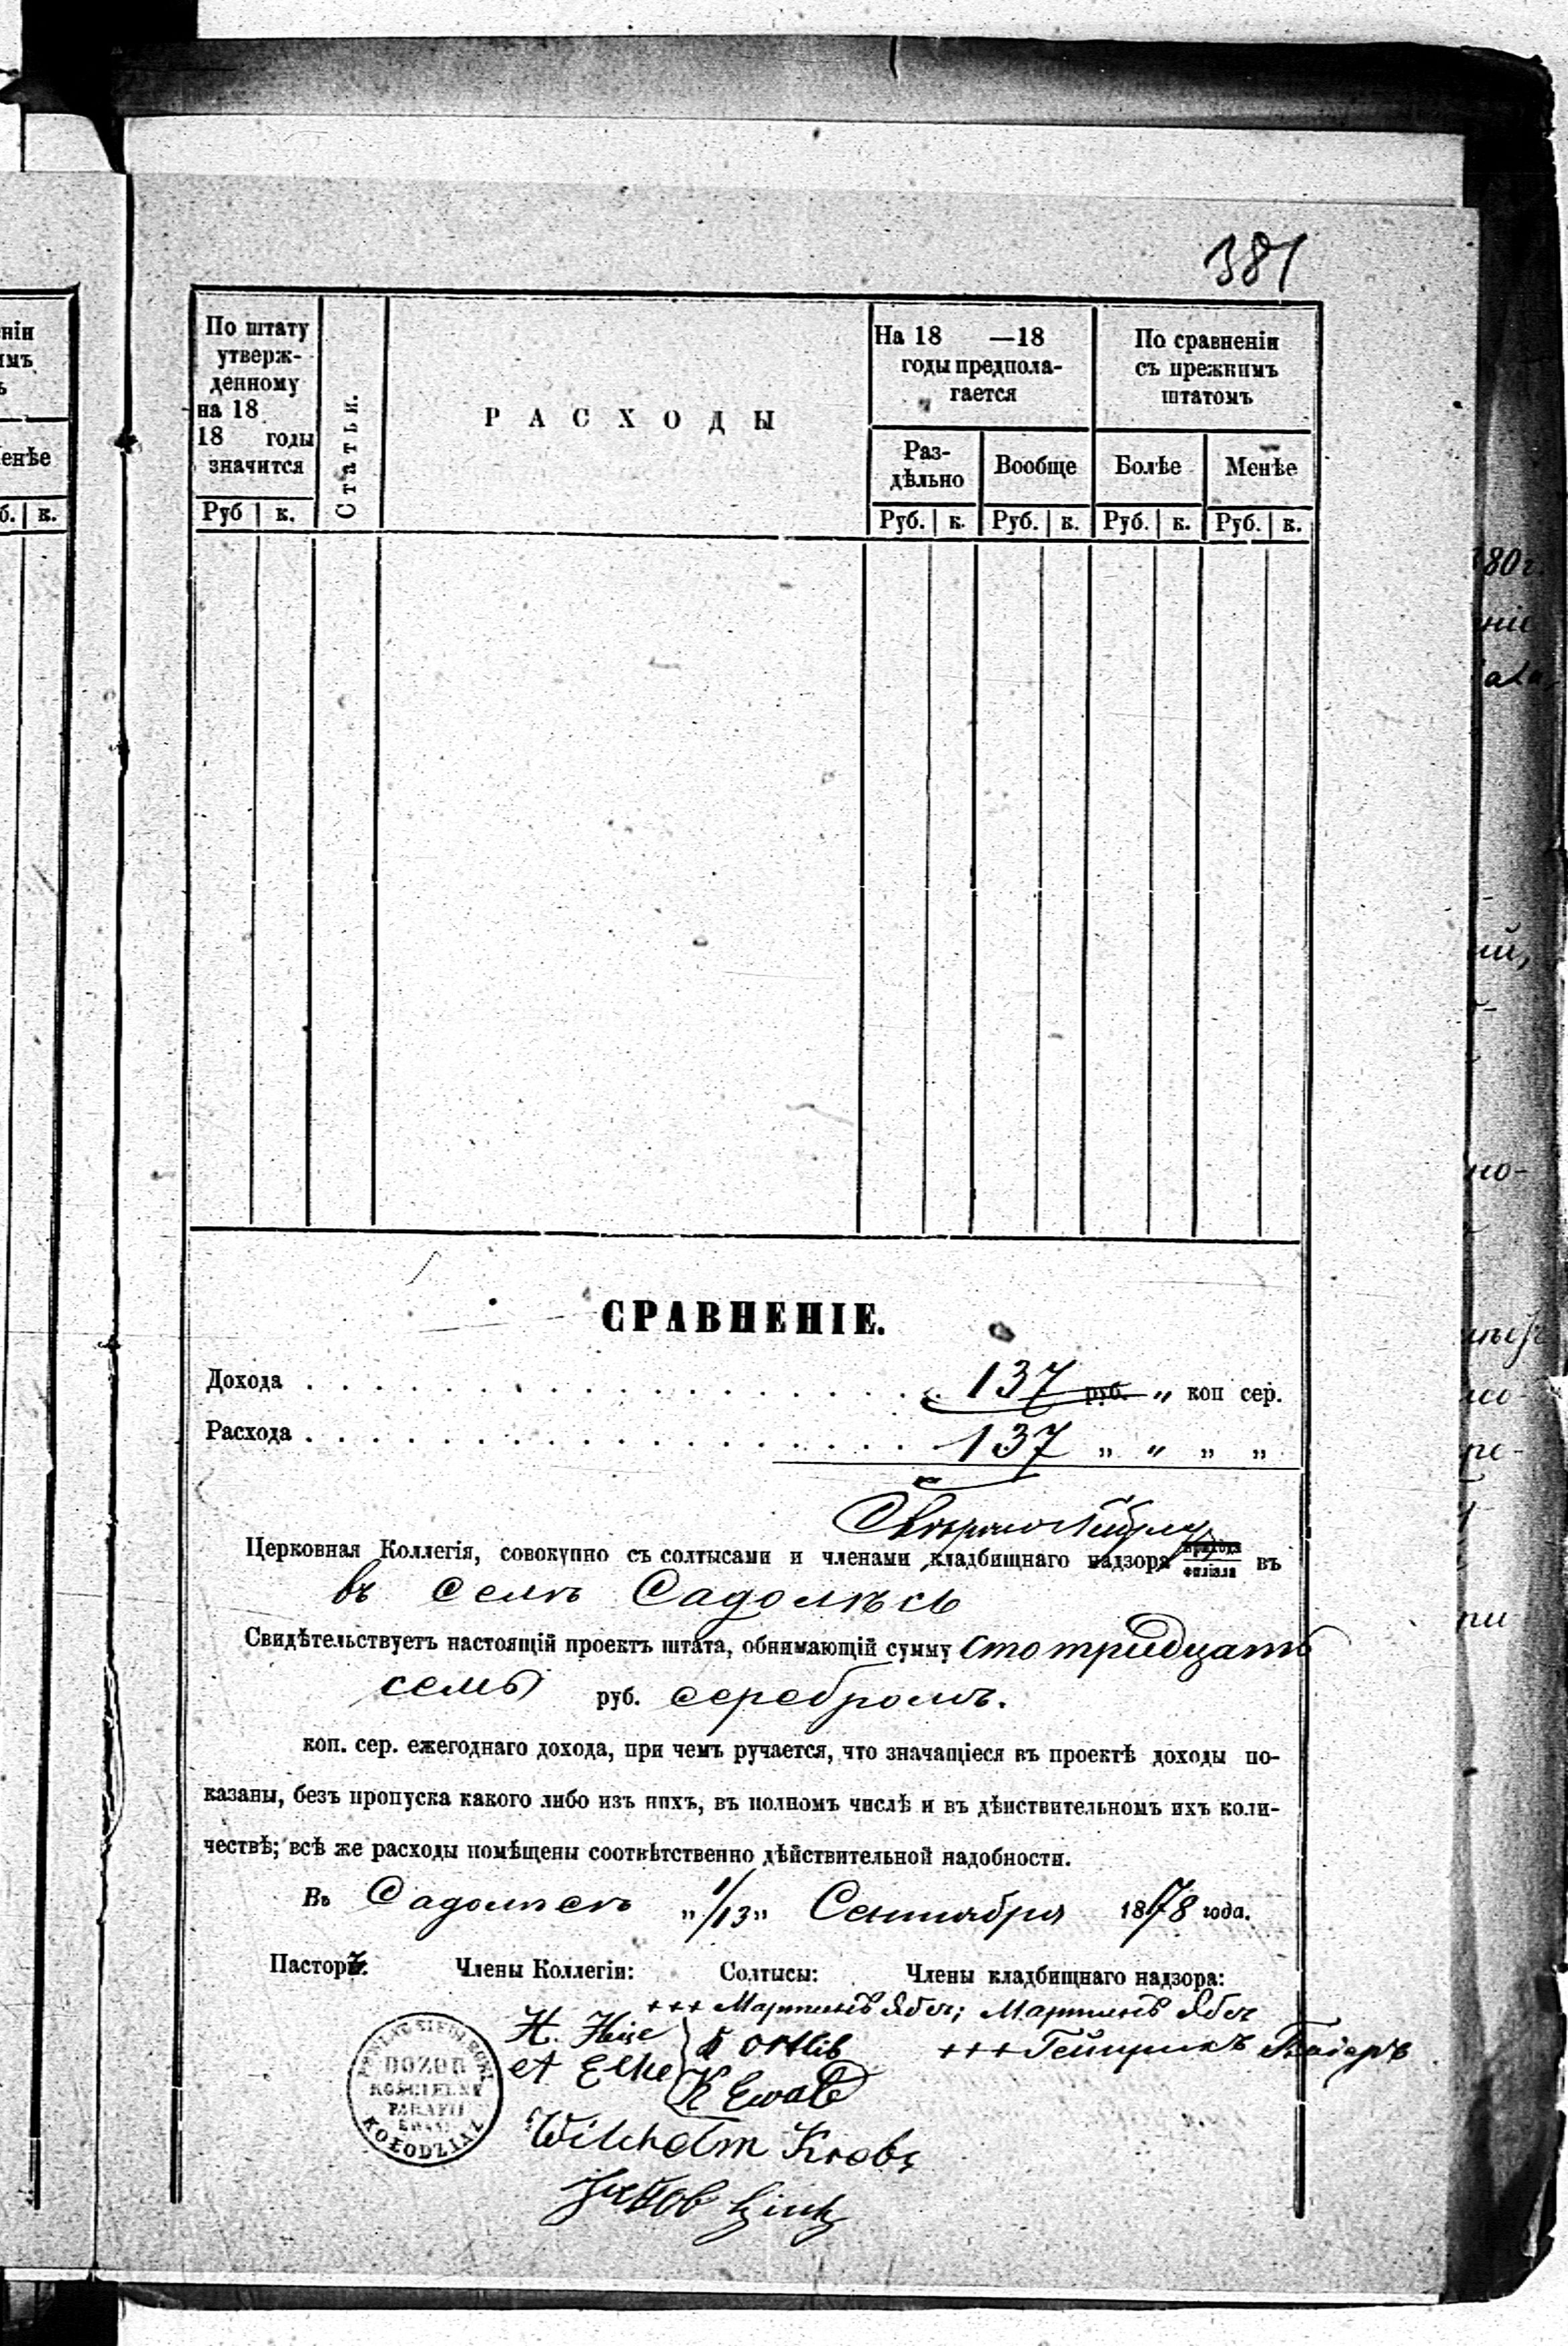 381
По штату
утверж-
денному
на 18
18 годы
значится
Руб к.
Статьи.
РАСХОДЫ
На 18 —18
годы предпола-
гается
Раз-
дѣльно
Руб. к.
Вообще
Руб. к.
По сравненіи
съ прежнимъ
штатомъ
Болѣе
Руб. к.
Менѣе
Руб. к.
СРАВНЕНІЕ.
Дохода . . . 137 руб. „ коп сер.
Расхода . . . 137 „ „ „ „
Церковная Коллегія, совокупно съ солтысами и членами кладбищнаго надзора прихода филіала въ
въ селѣ Садолѣсь
Свидѣтельствуетъ настоящій проектъ штата, обнимающій сумму сто тридцать
семь руб. серебромъ.
коп. сер. ежегоднаго дохода, при чемъ ручается, что значащіеся въ проектѣ доходы по-
казаны, безъ пропуска какого либо изъ нихъ, въ полномъ числѣ и въ дѣйствительномъ ихъ коли-
чествѣ; всѣ же расходы помѣщены соотвѣтственно дѣйствительной надобности.
Въ Садолѣсѣ „1/13„ Сентября 1878 года.
Пасторъ: Члены Коллегіи: Солтысы: Члены кладбищнаго надзора:
+++ Мартинъ +++ Мартинъ
H. Ortlib +++ Гейнрикъ
A Elke K Ewald
Wilhelm Krabs
Jakob
DOZÓR
KOŚCIELNY
PARAFII
KOŁODZIĄŻ